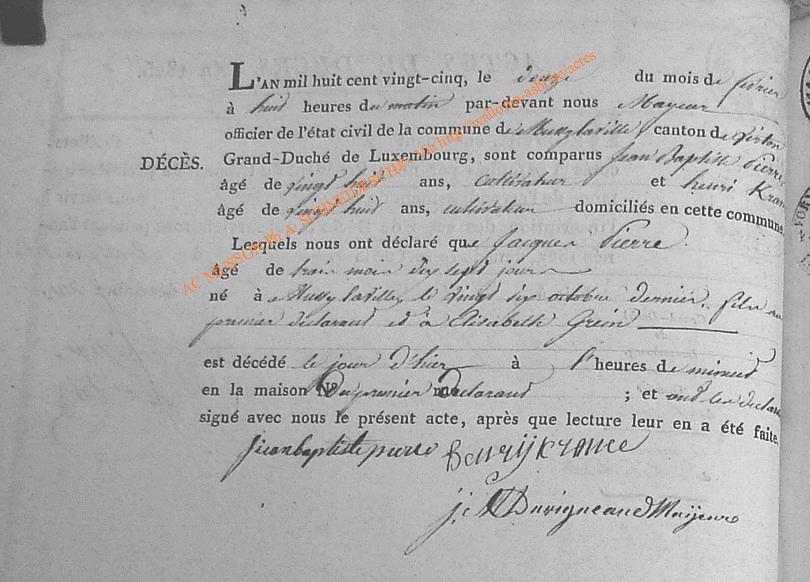 L'AN mil huit cent vingt-cinq, le douze du mois de février
à huit heures du matin par-devant nous Mayeur
officier de l'état civil de la commune de Mussy laville, canton de virton
DÉCÈS. Grand-Duché de Luxembourg, sont comparus Jean Baptiste Pierre
âgé de vingt huit ans, cultivateur et henri
âgé de vingt huit ans, cultivateur domiciliés en cette commune,
Lesquels nous ont déclaré que Jacques Pierre
âgé de trois mois dix sept jours
né à Mussy laville, le vingt six octobre dernier, fils au
premier déclarant et à Elisabeth Grein
est décédé le jour d'hier à l'heures de minuit
en la maison No du premier déclarant ; et ont les
signé avec nous le présent acte, après que lecture leur en a été faite.
jean baptiste pierre Henrij krance
j. Duvigneaud Maijeur
AC MUSSON Ph A. SCHNEIDESCH E.Ma http://wallonia-asbl.be/actes